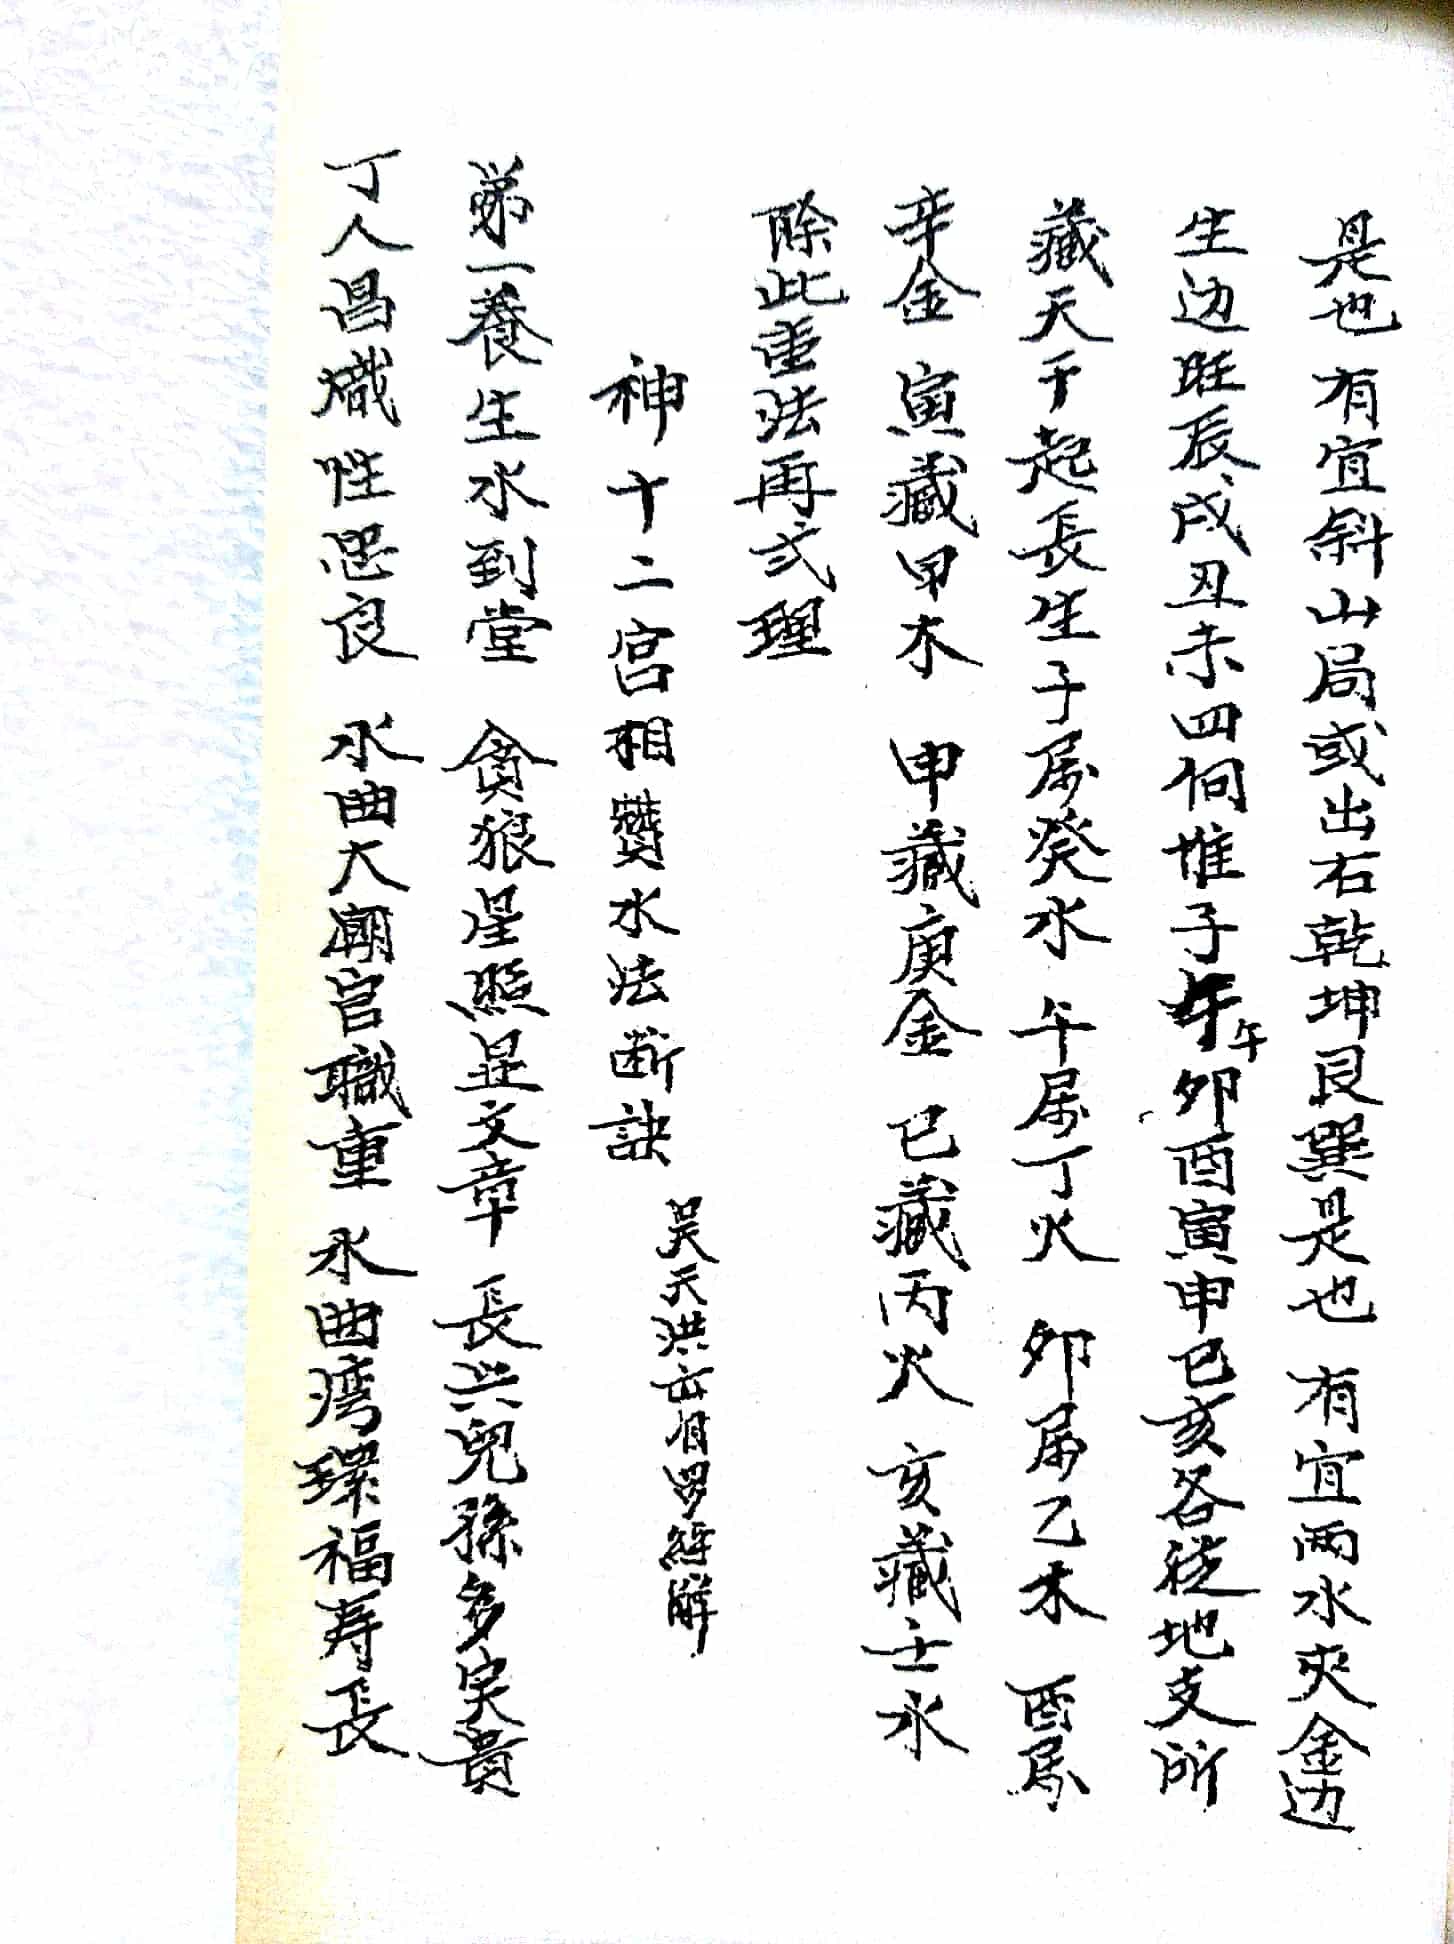 是也 有宜斜山局或出右乾坤艮巽是也 有宜两水夾金边
生边旺辰戌丑未四何惟子午卯酉寅申巳亥各從地支所
藏天干起長生子属癸水 午属丁火 卯属乙木 酉属
辛金 寅藏甲木 申藏庚金 巳藏丙火 亥藏壬水
除此重法再弍理
神十二宫相贊水法断訣
吴天洪云有罗經解
第一養生水到堂 貪狼星照显文章 長兴兒孫多宾貴
丁人昌熾性思良 水曲大潮官職重 水曲湾環福寿長